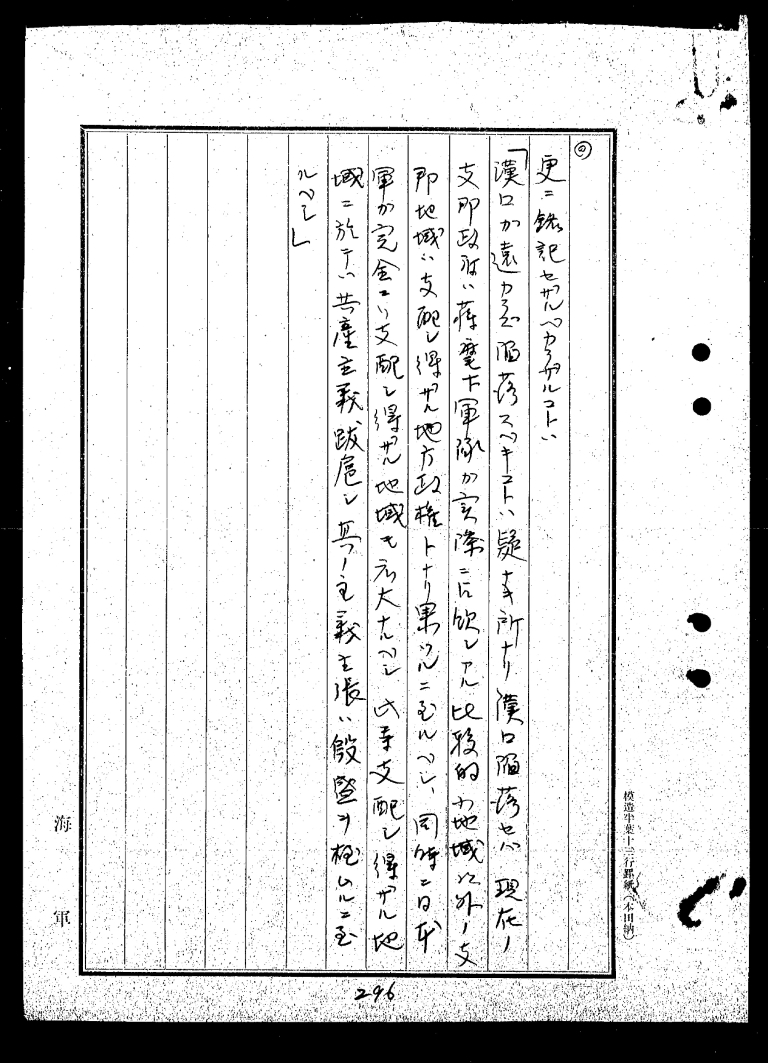 更ニ銘記セザルベカラザルコトハ
「漢口カ遠カラズ陥落スベキコトハ疑ナキ所ナリ漢口陥落セバ現在ノ
支那政府ハ蒋麾下軍隊カ実際ニ占領シアル比較的小地域以外ノ支
那地域ハ支配シ得ザル地方政権トナリ果ツルニ至ルベシ、同時ニ日本
軍カ完全ニハ支配シ得ザル地域モ広大ナルベシ此等支配シ得ザル地
域ニ於テハ共産主義跋扈シ其ノ主義主張ハ殷盛ヲ極ムルニ至
ルベシ」
海軍
模造半葉十三行罫紙(本田納)
296